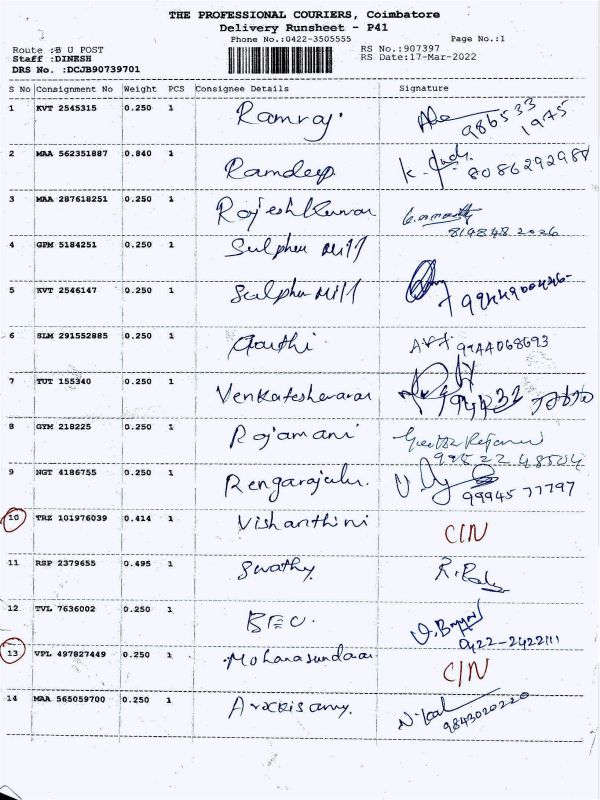 THE PROFESSIONAL COURIERS, Coimbatore
Delivery Runsheet - P41
Phone No.:0422-3505555 Page No.:1
Route :B U POST RS No.:907397
Staff :DINESH RS Date:17-Mar-2022
DRS No. :DCJB90739701
S No Consignment No Weight PCS Consignee Details Signature
1 KVT 2545315 0.250 1 Ramraj. 986533
1975
2 MAA 562351887 0.840 1 Ramdeep 8086292988
3 MAA 287618251 0.250 1 Rajeshkumar
819848 2026
4 GPM 5184251 0.250 1 Sulphur Mill
5 KVT 2546147 0.250 1 Sulphur Mill
6 SLM 291552885 0.250 1 9944068693
7 TUT 155340 0.250 1 Venkateshwaran
8 GYM 218225 0.250 1 Rajamani
99522 48504
9 NGT 4186755 0.250 1 Rengarajulu.
99945 77797
10 TRZ 101976039 0.414 1 Vishanthini CIN
11 RSP 2379655 0.495 1 Swathy
12 TVL 7636002 0.250 1 BEC.
0422-2422111
13 VPL 497827449 0.250 1 Mohanasundaar CIN
14 MAA 565059700 0.250 1 Arokisamy.
9843020220